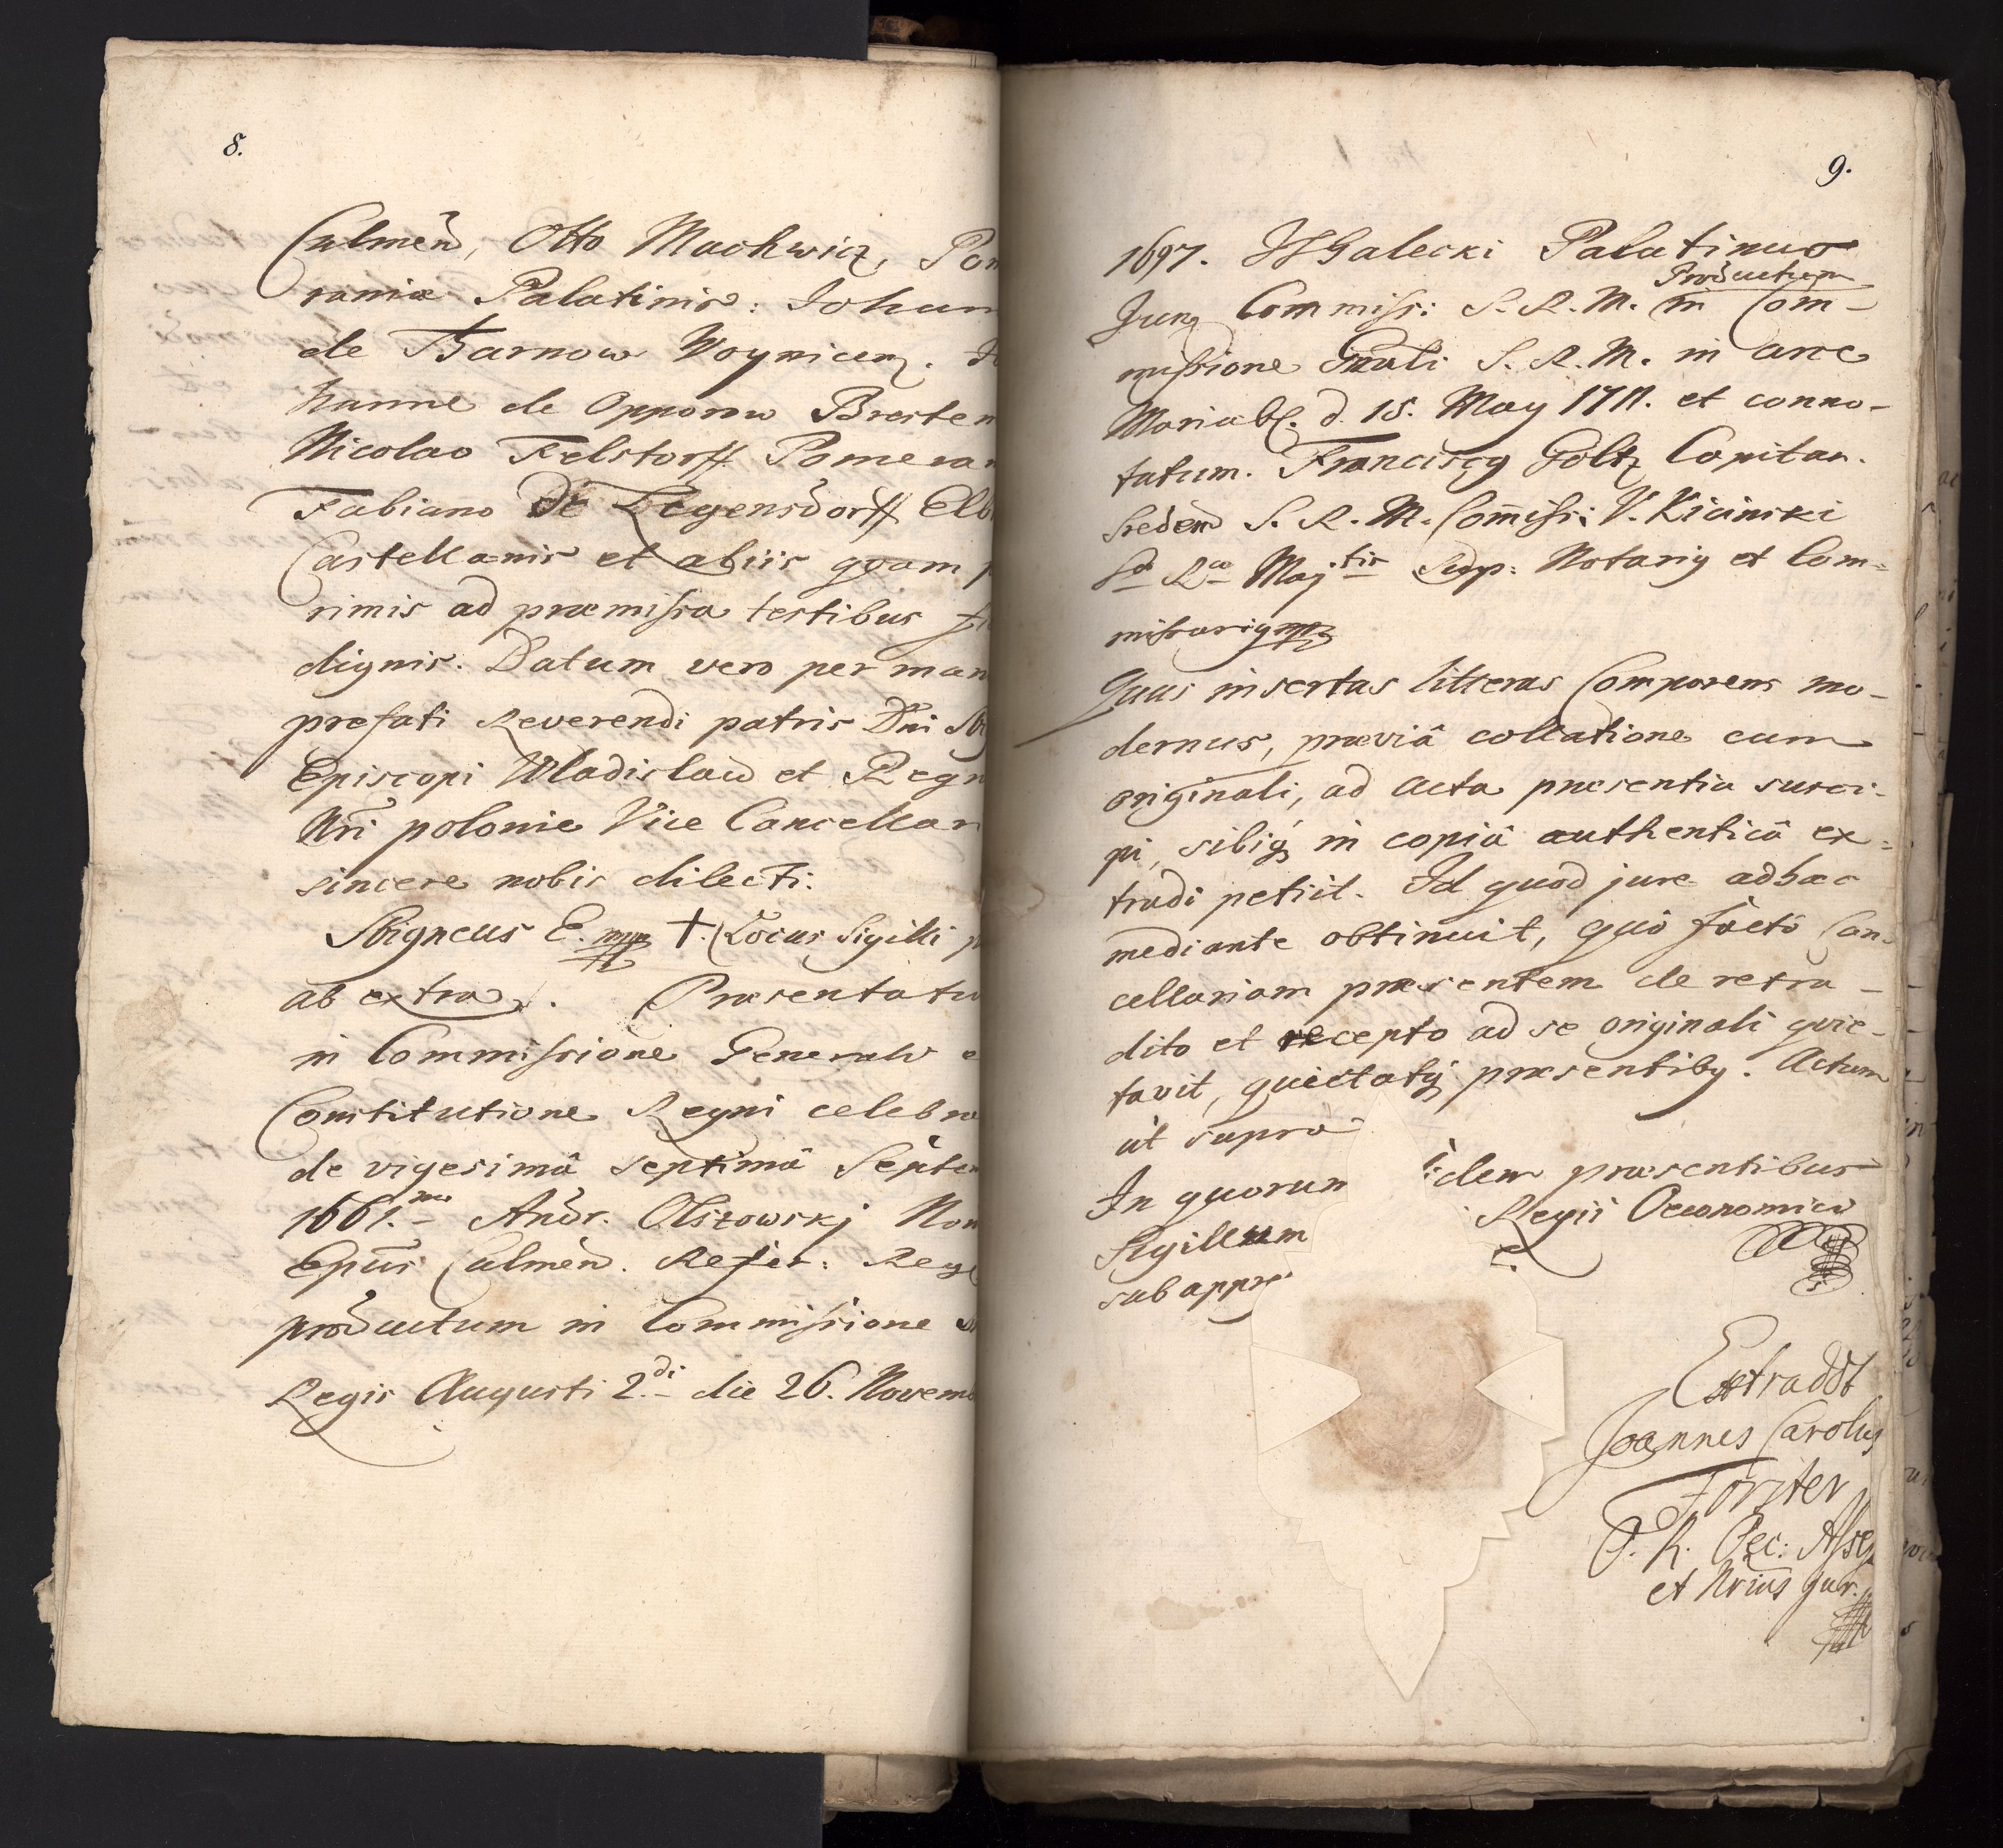 8.
Culmen, Otto Machwicz, Pom
raniæ Palatinis: Johan
de Tarnow Woynicen. Jo
hanne de Opporow Bresten
Nicolao Felstorff Pomeran
Fabiano de Legensdorff Elb
Castellanis et aliis quam p
rimis ad præmissa testibus fi
dignis. Datum vero per man
prefati Reverendi patris Dni Sbi
Episcopi Wladislaw et Regn
Nri polonie Vice Cancellar
sincere nobis dilecti.
Sbigneus E. mpp †. (Locus Sigilli p
ab extra). Præsentatu
in Commissione Generali e
Constitutione Regni celebra
de vigesimâ septimâ Septem
1661.mo Andr. Olszowskj Nom
Epus Culmen. Refer. Reg
productum in Commissione
Regis Augusti 2.di die 26. Novemb
9.
1697. Galecki Palatinus
Productum
Jung Commiss: S. R. M. in Com-
missione Gnali S. R. M. in arce
Mariæb. d. 15. May 1711. et conno-
tatum. Franciscg Goltz Capitan.
Sreden S. R. M. Comiss: V. Kicinski
Sæ Ræ Majtis Notarig et Com=
missarig mpp
Quas insertas litteras Comparens mo-
dernus, præviâ collatione cum
originali, ad acta præsentia susci-
pi, sibiq in copiâ authenticâ ex=
tradi petiit. Id quod jure adhæc
mediante obtinuit, quô factô Can-
cellariam præsentem de retra-
dito et recepto ad se originali quie-
tavit, quietatq præsentibg. Actum
ut supra
In quorum idem præsentibus
Sigillum Regii Oeconomici
sub appre
Extraddt
Joannes Carolus
Förster
J. R. Oec: Asse
et Nrius jur.